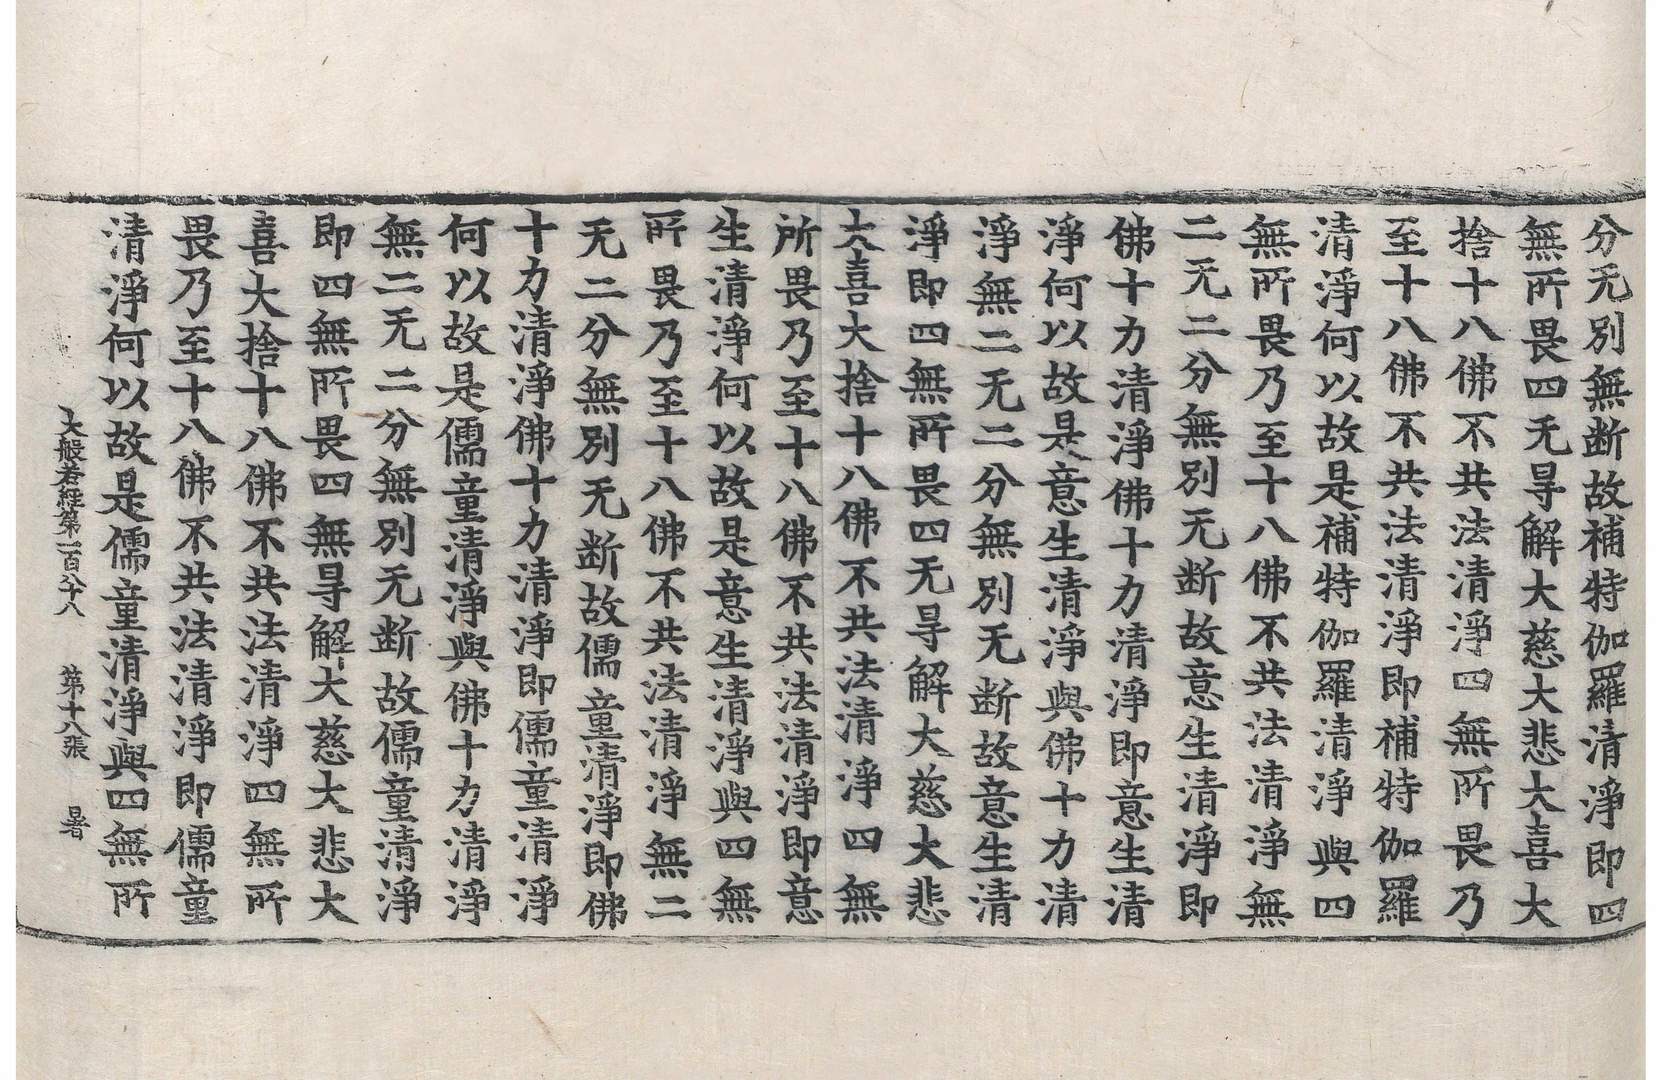 分无別無断故補特伽羅清淨即四
無所畏四无㝵解大慈大悲大喜大
捨十八佛不共法清淨四無所畏乃
至十八佛不共法清淨即補特伽羅
清淨何以故是補特伽羅清淨與四
無所畏乃至十八佛不共法清淨無
二无二分無別无断故意生清淨即
佛十力清淨佛十力清淨即意生清
淨何以故是意生清淨與佛十力清
淨無二无二分無別无断故意生清
淨即四無所畏四无㝵解大慈大悲
大喜大捨十八佛不共法清淨四無
所畏乃至十八佛不共法清淨即意
生清淨何以故是意生清淨與四無
所畏乃至十八佛不共法清淨無二
无二分無別无断故儒童清淨即佛
十力清淨佛十力清淨即儒童清淨
何以故是儒童清淨與佛十力清淨
無二无二分無別无断故儒童清淨
即四無所畏四無㝵解大慈大悲大
喜大捨十八佛不共法清淨四無所
畏乃至十八佛不共法清淨即儒童
清淨何以故是儒童清淨與四無所
大般若經第一百八十八 第十八張 暑